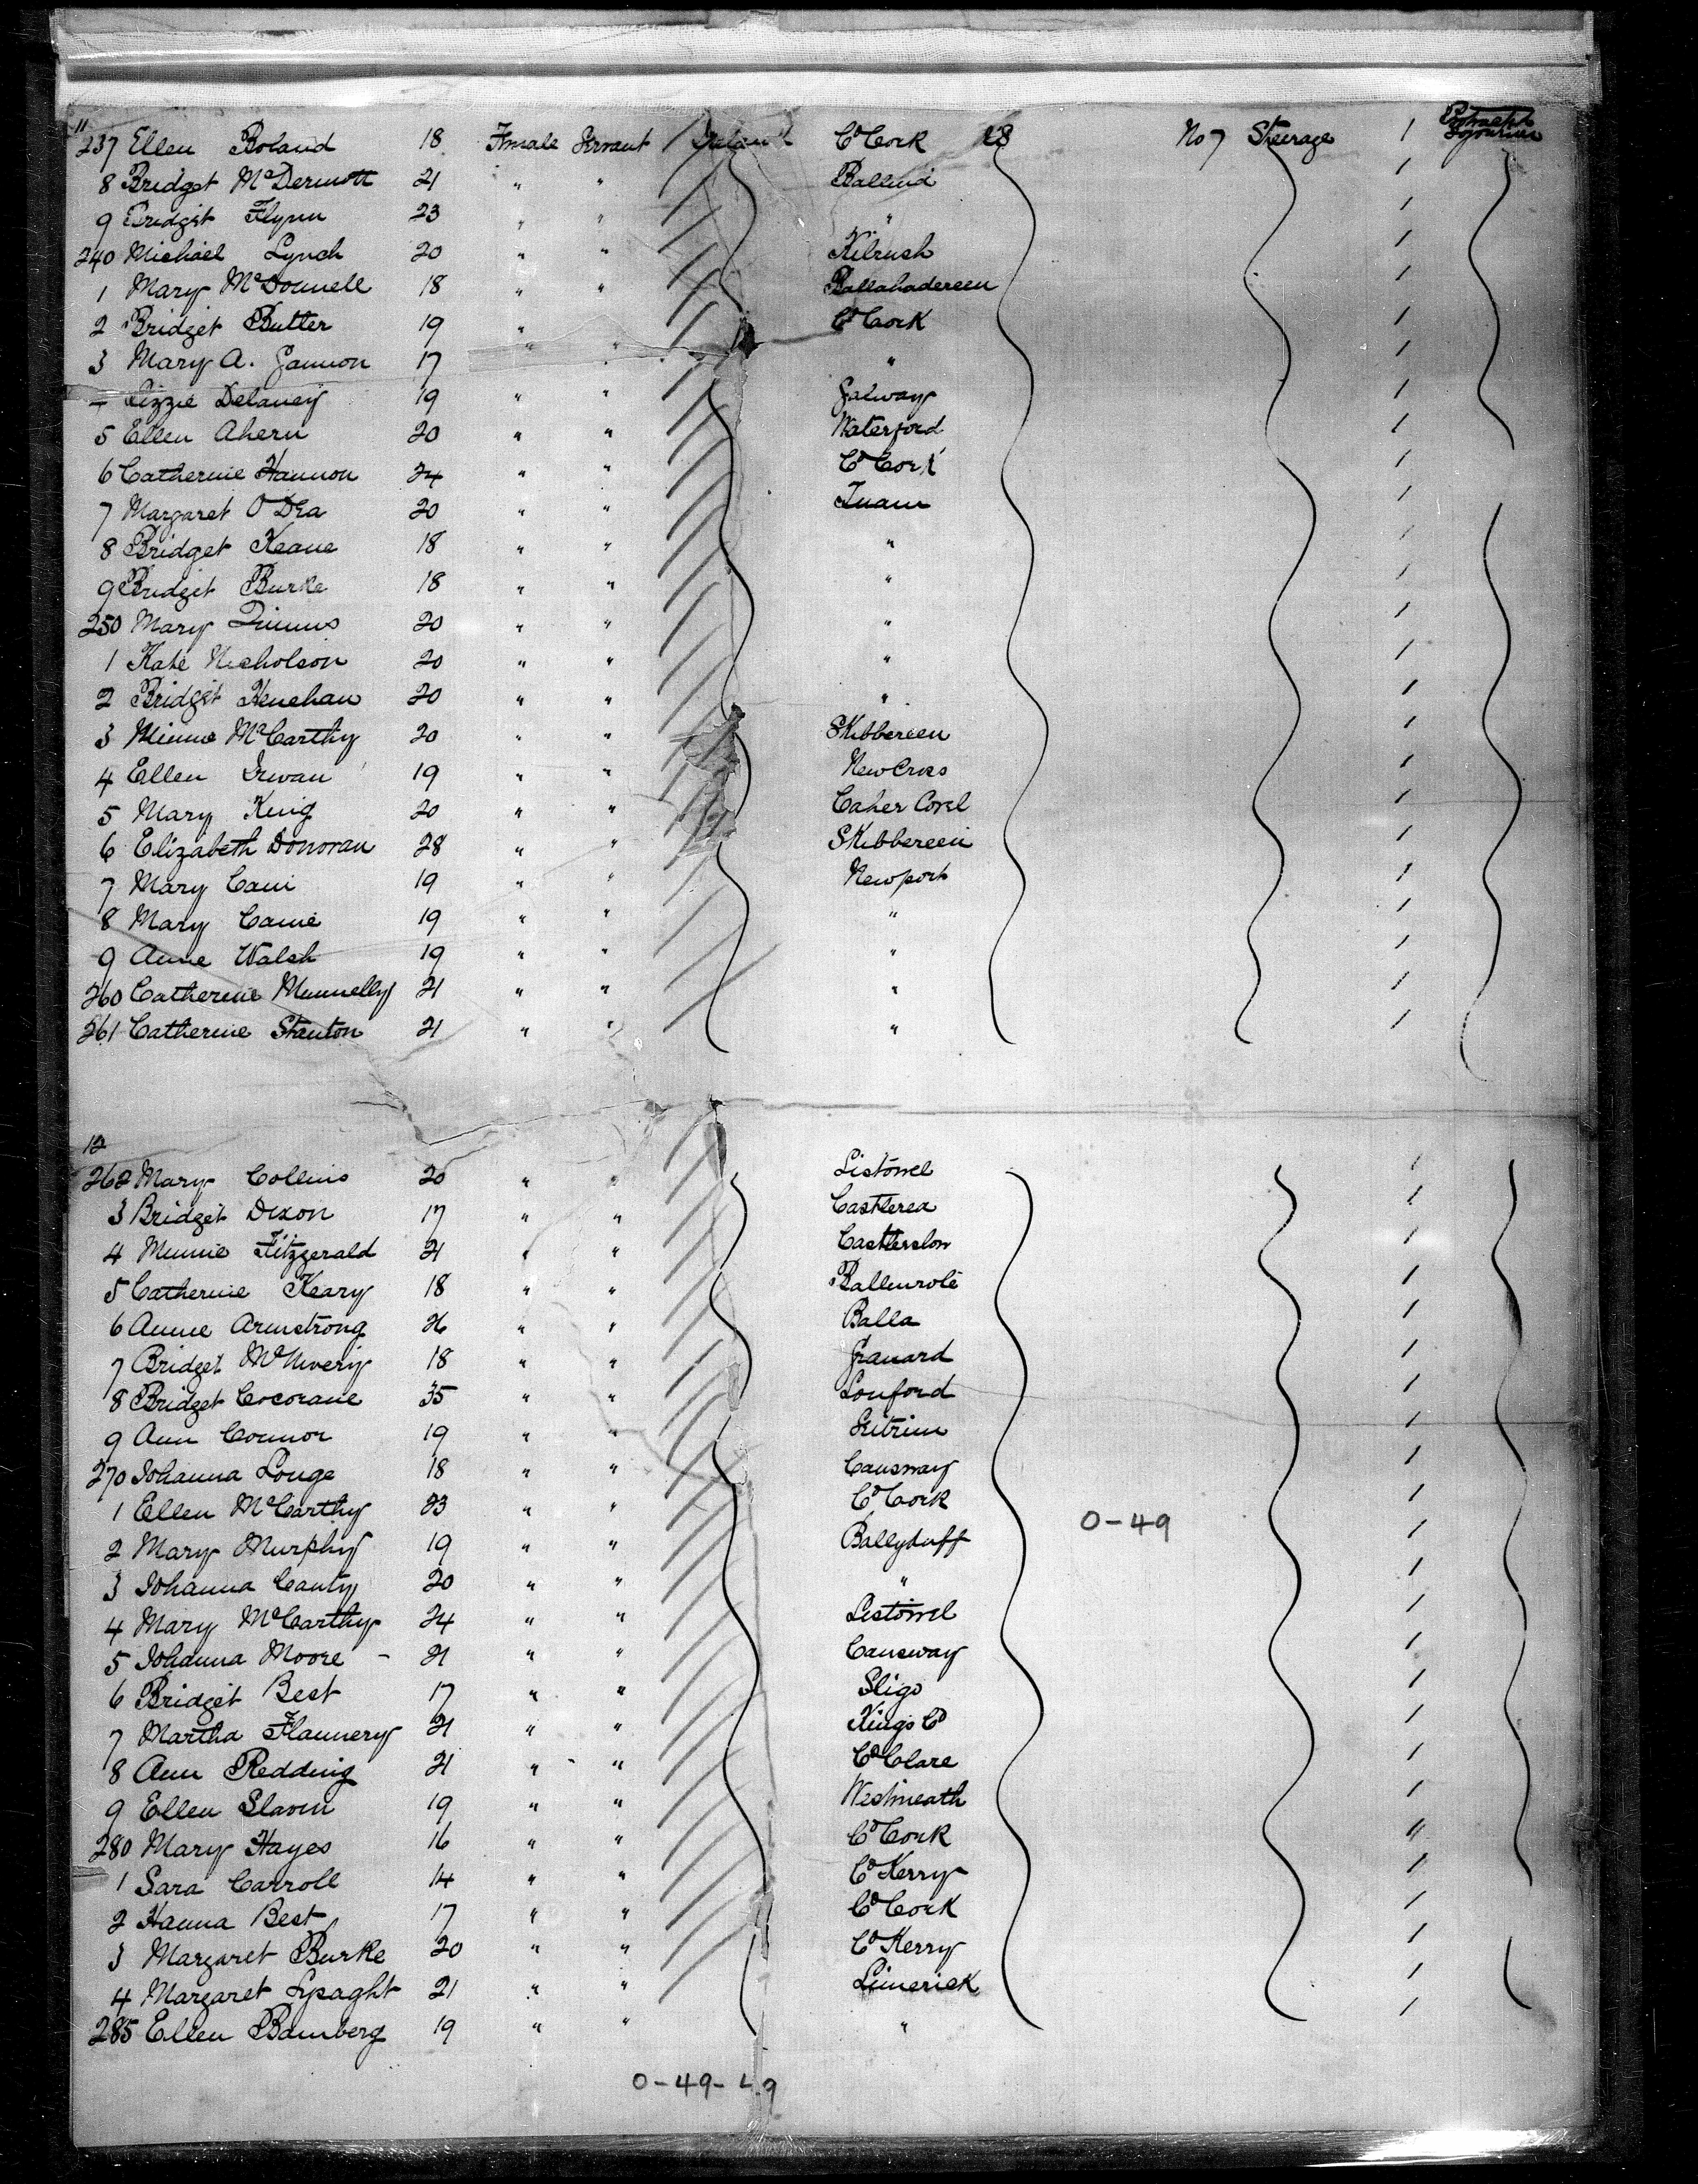 11
237 Ellen Boland 18 Female Servant Ireland Co Cork US No 7 Steerage 1 Protracted Sojourn
8 Bridget McDermott 21 " " Ballina /
9 Bridget Flynn 23 " " " /
240 Michael Lynch 20 " " Kilrush /
1 Mary McDonnell 18 " " Ballahadereen /
2 Bridget Butler 19 " Co Cork /
3 Mary A. Gannon 17 " " " /
Lizzie Delaney 19 " " Galway /
5 Ellen Ahern 20 " " Waterford /
6 Catherine Hannon 24 " " Co Cork /
7 Margaret O'Dea 20 " " Tuam /
8 Bridget Keane 18 " " " /
9 Bridget Burke 18 " " " /
250 Mary 20 " " " /
1 Kate Nicholson 20 " " " /
2 Bridget Henehan 20 " " " /
3 Minnie McCarthy 20 " " Skibbereen /
4 Ellen Irwan 19 " " New Cross /
5 Mary King 20 " " Caher /
6 Elizabeth Donovan 28 " " Skibbereen /
7 Mary 19 " " Newport /
8 Mary 19 " " " /
9 Anne Walsh 19 " " " /
260 Catherine Munnelly 21 " " " /
261 Catherine Stanton 21 " " " /
12
262 Mary Collins 20 " " Listowel /
3 Bridget Dixon 17 " " Castlerea /
4 Minnie Fitzgerald 21 " " /
5 Catherine Keary 18 " " /
6 Annie Armstrong 26 " " Balla /
7 Bridget 18 " " Granard /
8 Bridget Cocorane 35 " " Lonford /
9 Ann Connor 19 " " Leitrim /
270 Johanna Longe 18 " " Causway /
1 Ellen McCarthy 23 " " Co Cork / 0-49
2 Mary Murphy 19 " " Ballyduff /
3 Johanna Canty 20 " " " /
4 Mary McCarthy 24 " " Listowel /
5 Johanna Moore - 21 " " Causway /
6 Bridget Best 17 " " Sligo /
7 Martha Flannery 21 " " Kings Co /
8 Ann Redding 21 " " Co Clare /
9 Ellen Slavin 19 " " Westmeath /
280 Mary Hayes 16 " " Co Cork "
1 Sara Carroll 14 " " Co Kerry /
2 Hanna Best 17 " " Co Cork /
3 Margaret Burke 20 " " Co Kerry /
4 Margaret Lysaght 21 " " Limerick /
285 Ellen Bamberg 19 " " " /
0-49-49